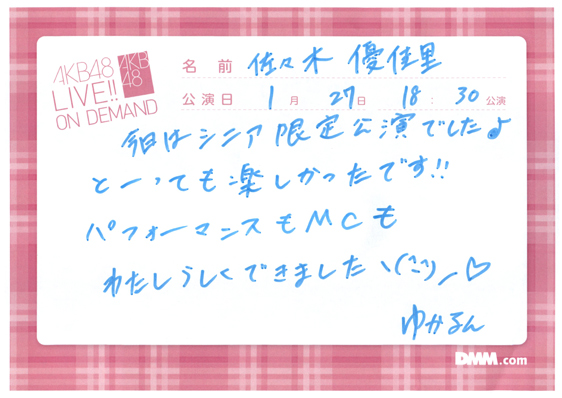 AKB48
LIVE!!
ON DEMAND
AKB
48
名前 佐々木 優佳里
公演日 1月 27日 18:30公演
今日はシニア限定公演でした♪
とーっても楽しかったです!!
パフォーマンスもMCも
わたしらしくできましたヽ(^^)ノ♡
ゆかるん
DMM.com